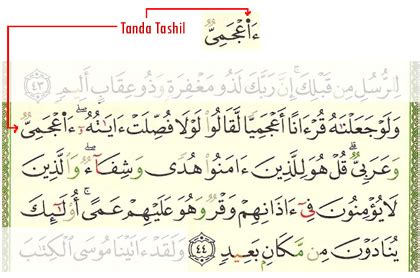 Tanda Tashil
ءَا۬عْجَمِىٌّ
لِلرُّسُلِ مِن قَبْلِكَ ۚ إِنَّ رَبَّكَ لَذُو مَغْفِرَةٍ وَذُو عِقَابٍ أَلِيمٍ ٤٣
وَلَوْ جَعَلْنَٰهُ قُرْءَانًا أَعْجَمِيًّا لَّقَالُوا۟ لَوْلَا فُصِّلَتْ ءَايَٰتُهُۥٓ ۖ ءَا۬عْجَمِىٌّ
وَعَرَبِىٌّ ۗ قُلْ هُوَ لِلَّذِينَ ءَامَنُوا۟ هُدًى وَشِفَآءٌ ۖ وَٱلَّذِينَ
لَا يُؤْمِنُونَ فِىٓ ءَاذَانِهِمْ وَقْرٌ وَهُوَ عَلَيْهِمْ عَمًى ۚ أُو۟لَٰٓئِكَ
يُنَادَوْنَ مِن مَّكَانٍۭ بَعِيدٍ ٤٤ وَلَقَدْ ءَاتَيْنَا مُوسَى ٱلْكِتَٰبَ